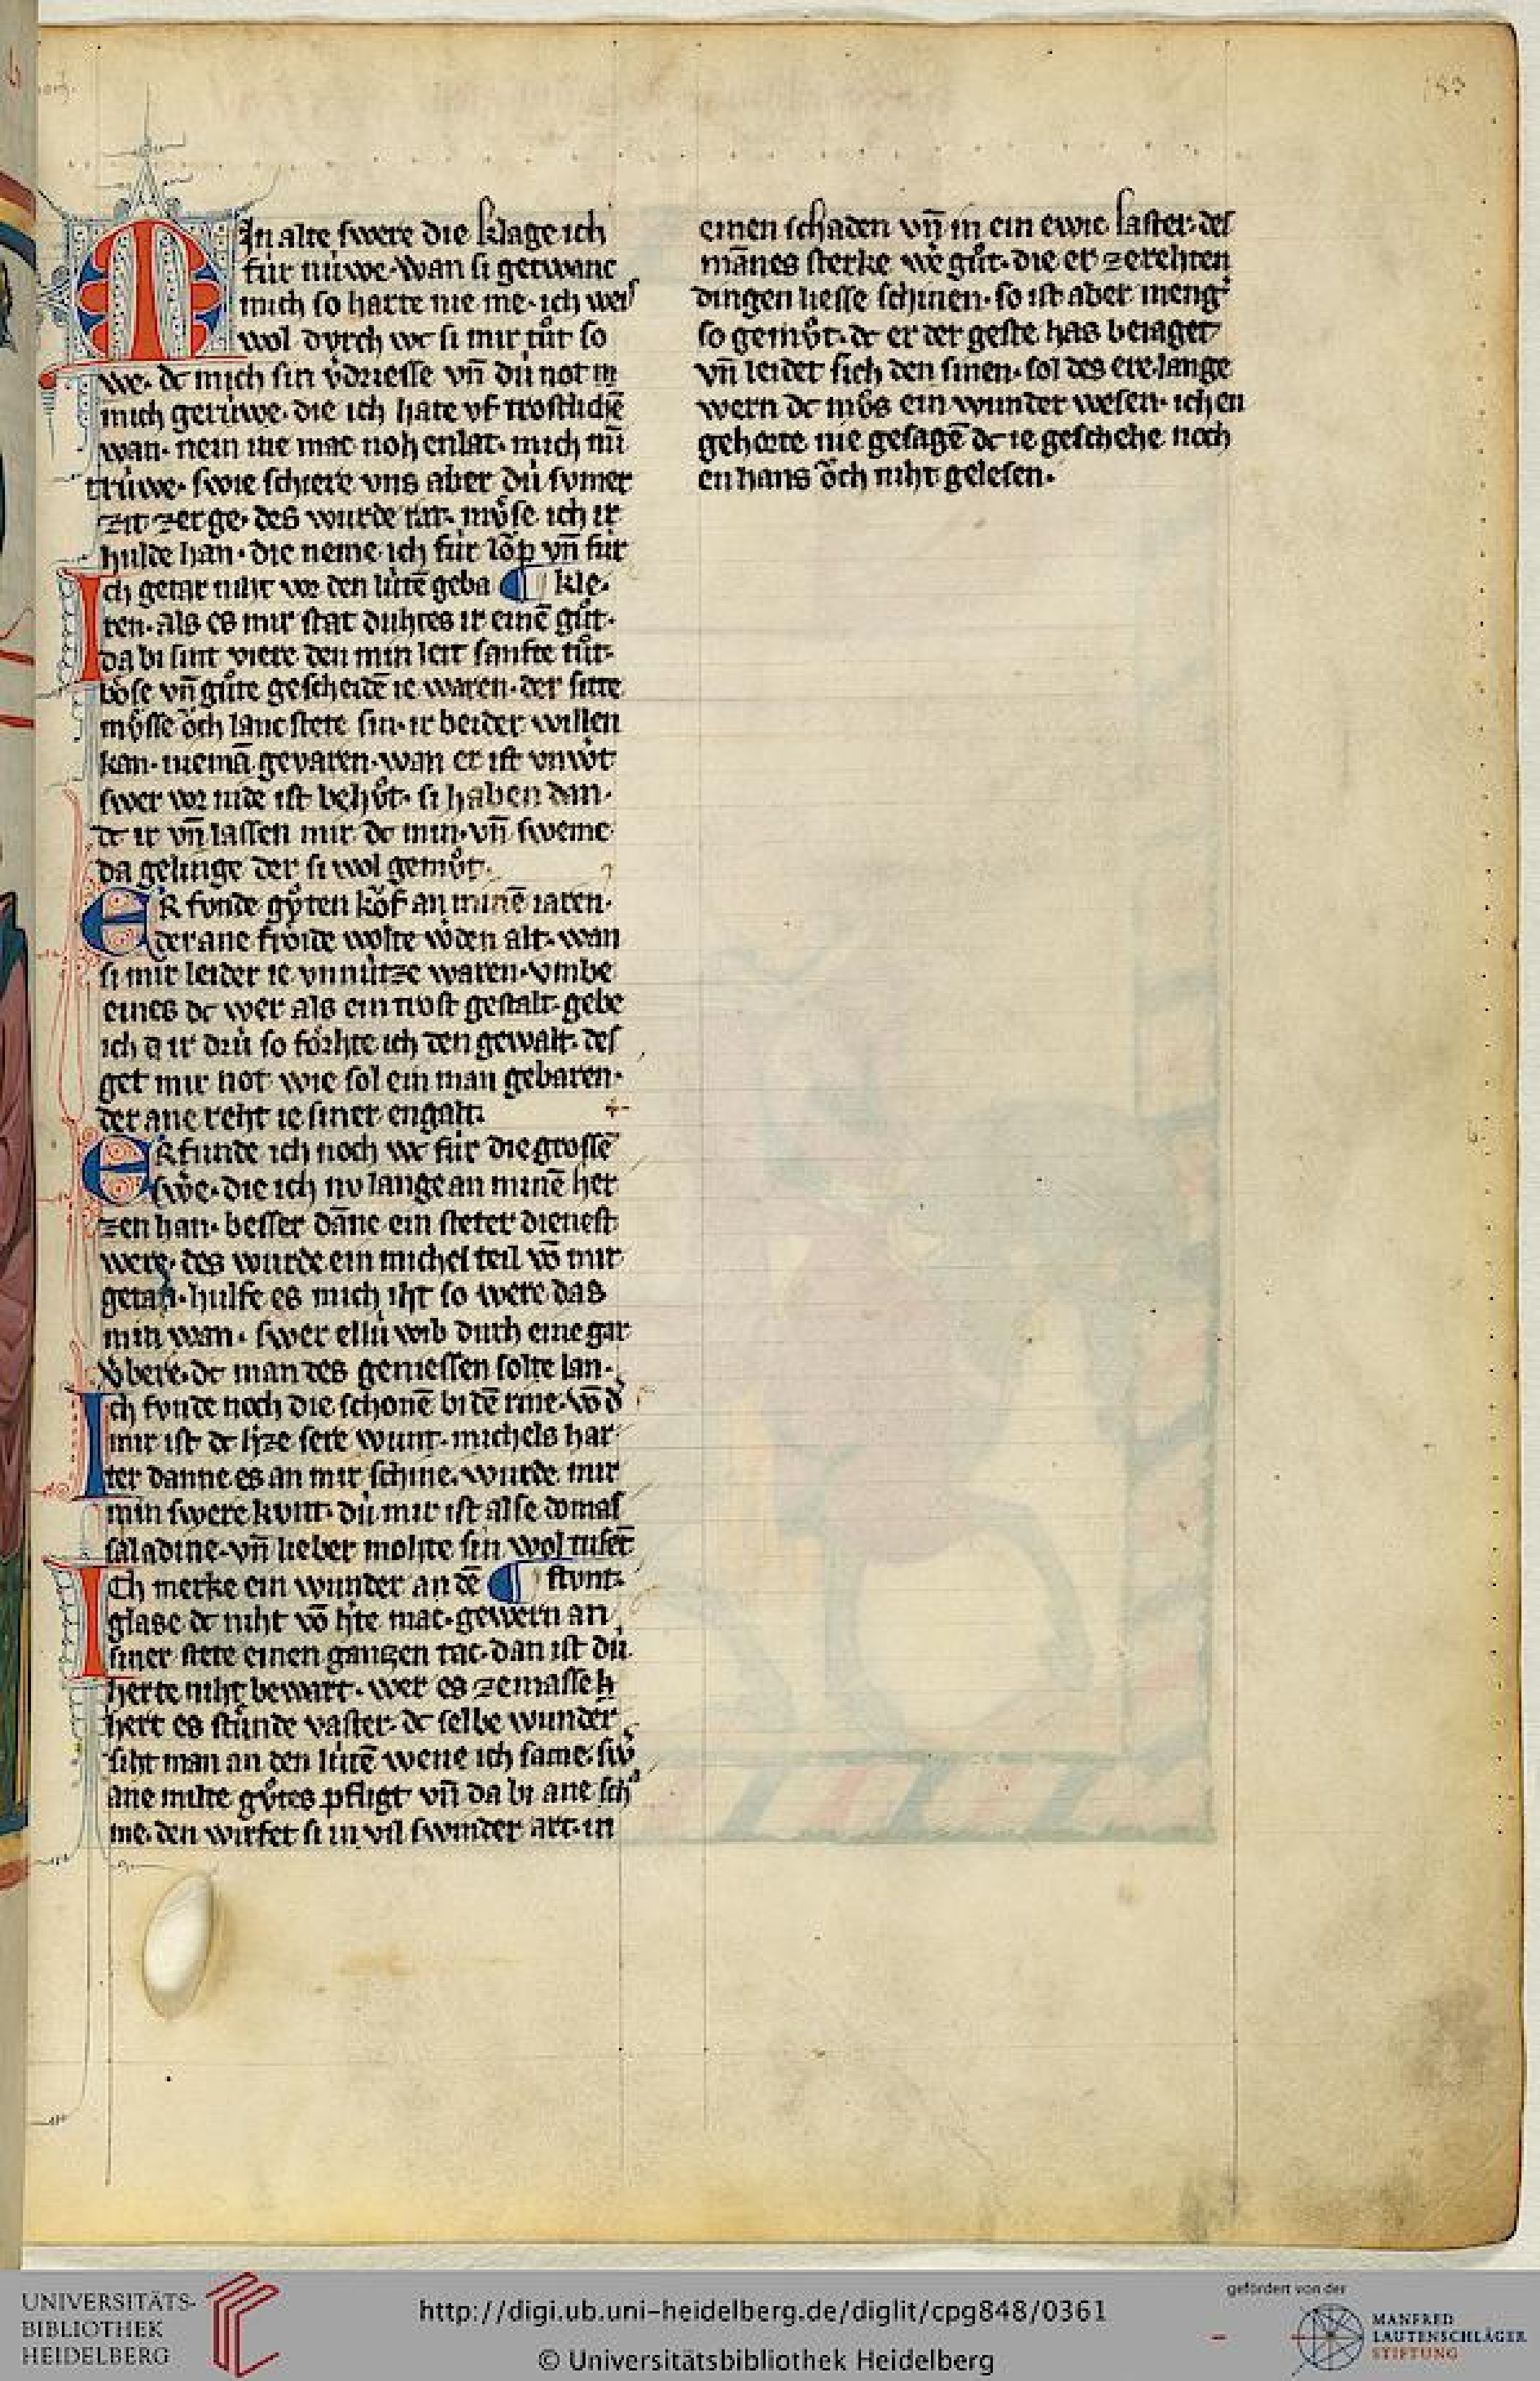 183
MIn alte swere die klage ich
fúr núwe. wan si getwanc
mich so harte nie me. ich weis
wol dvrch wc si mir tůt so
we. dc mich sin v̾driesse vn̄ dú not in
mich gerúwe. die ich hate vf trostlichē
wan. nein ine mac noh enlat. mich mī
trúwe. swie schiere vns aber dú svmer
zit zerge. des wurde rat. mv̊se ich ir
hulde han. die neme ich fúr lǒp vn̄ fúr
Ich getar niht vor den lútē geba ¶ kle.
ren. als es mir stat duhtes ir einē gůt.
da bi sint viere den min leit sanfte tůt.
bo̊se vn̄ gůte gescheidē ie waren. der sitte
mv̊sse ǒch lanc stete sin. ir beider willen
kan. niemā gevaren. wan er ist vnw̾t
swer vor nide ist behv̊t. si haben dan.
dc ir vn̄ lassen mir dc min. vn̄ sweme
da gelinge der si wol gemv̊t.
ER fvnde gv̊ten kǒf an minē iaren.
der ane fro̊ide wolte w̾den alt. wan
si mir leider ie vnnútze waren. vmbe
eines dc wer als ein trost gestalt. gebe
ich ir drú so fo̊rhte ich den gewalt. des
get mir not wie sol ein man gebaren.
der ane reht ie siner engalt.
ERfunde ich noch wc fúr die grossē
sw̾e. die ich nv lange an minē her
zen han. besser dāne ein steter dienest
were. des wurde ein michel teil vō mir
getan. hulfe es mich iht so were das
min wan. swer ellú wib durh eine gar
v̾bere. dc man des geniessen solte lan.
Ich fvnde noch die schonē bi dē rine. vō d̾
mir ist dc h̾ze sere wunt. michels har
ter danne es an mir schine. wurde mir
min swere kvnt. dú mir ist alse domas
saladine. vn̄ lieber mohte sin wol tusēt
Ich merke ein wunder an dē ¶ stvnt.
glase dc niht vō h̾te mac. gewern an
siner stete einen ganzen tac. dan ist dú
herte niht bewart. wer es ze masse h
hert es stúnde vaster. dc selbe wunder
siht man an den lútē wene ich same. sw̾
ane milte gv̊tes pfligt vn̄ da bi ane sch
me. den wirfet si in vil swinder art. in
einen schaden vn̄ in ein ewic laster. des
mānes sterke we gůt. die er ze rehten
dingen liesse schinen. so ist aber meng̾
so gemv̊t. dc er der geste has beiaget
vn̄ leidet sich den sinen. sol des ere. lange
wern dc mv̊s ein wunder wesen. ich en
gehorte nie gesagē dc ie geschehe noch
en hans ǒch niht gelesen.
UNIVERSITÄTS-
BIBLIOTHEK
HEIDELBERG
http://digi.ub.uni-heidelberg.de/diglit/cpg848/0361
© Universitätsbibliothek Heidelberg
gefördert von der
MANFRED
LAUTENSCHLÄGER
STIFTUNG